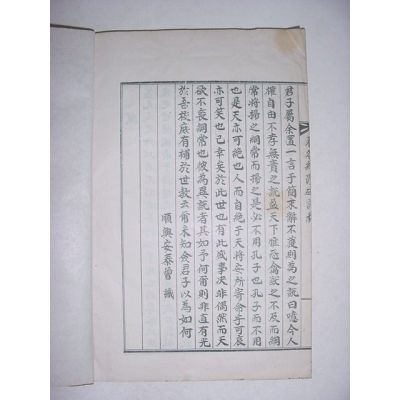 君子屬余置一言于簡末辭不獲則為之說曰噫今人
自由不孝無貴之說盈天下雖禽獸之不及而綱
常將掃之綱常而掃之是必不用孔子也孔子而不用
也是天亦可絕也人而自絕于天將安所寄命乎可哀
亦可笑也已幸矣於此世也有此盛事決非偶然而天
欲不喪綱常也彼為異說者其如予何爾則非直有光
於吾族庶有補於世教云爾未知僉君子以為如何
順興安泰曾識